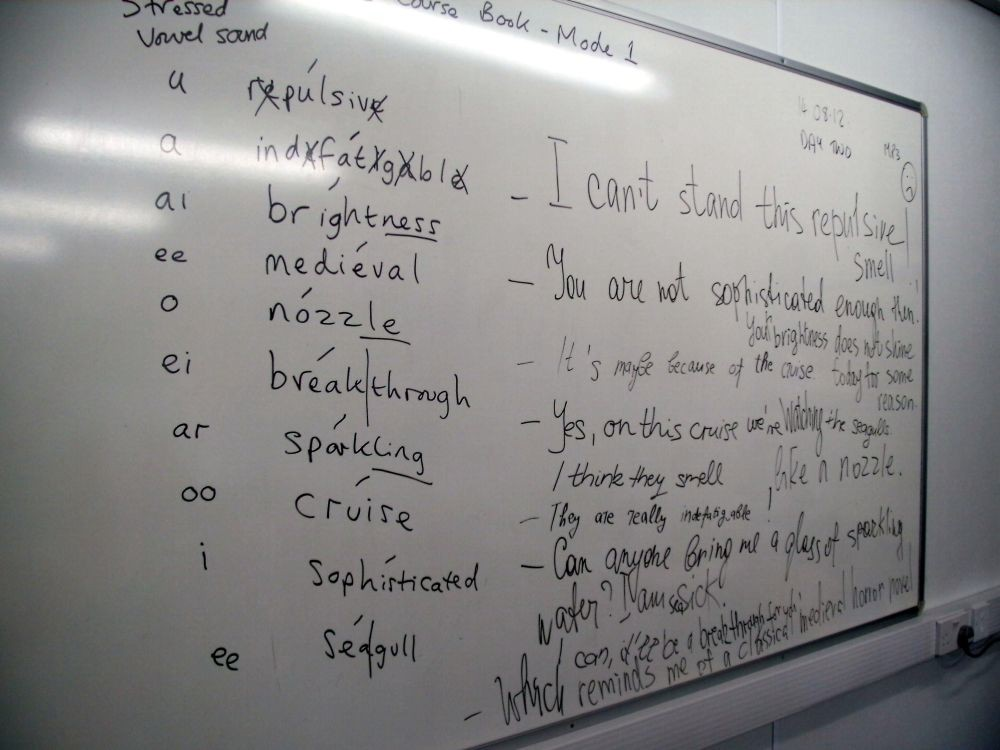 Stressed Course Book - Mode 1
Vowel sound
u repúlsive
a indefátigable
ai bríghtness
ee mediéval
o nózzle
ei bréak|through
ar spárkling
oo crúise
i Sophísticated
ee Séagull
14 08.12
DAY TWO MP3
- I can't stand this repulsive
smell
- You are not sophisticated enough then.
Your brightness does not shine
today for some
reason.
- It's maybe because of the cruise.
- Yes, on this cruise we're watching the seagulls.
I think they smell like a nozzle.
- They are really indefatigable
- Can anyone bring me a glass of sparkling
water? I am seasick.
I can, it'll be a breakthrough for you
- Which reminds me of a classical medieval horror novel